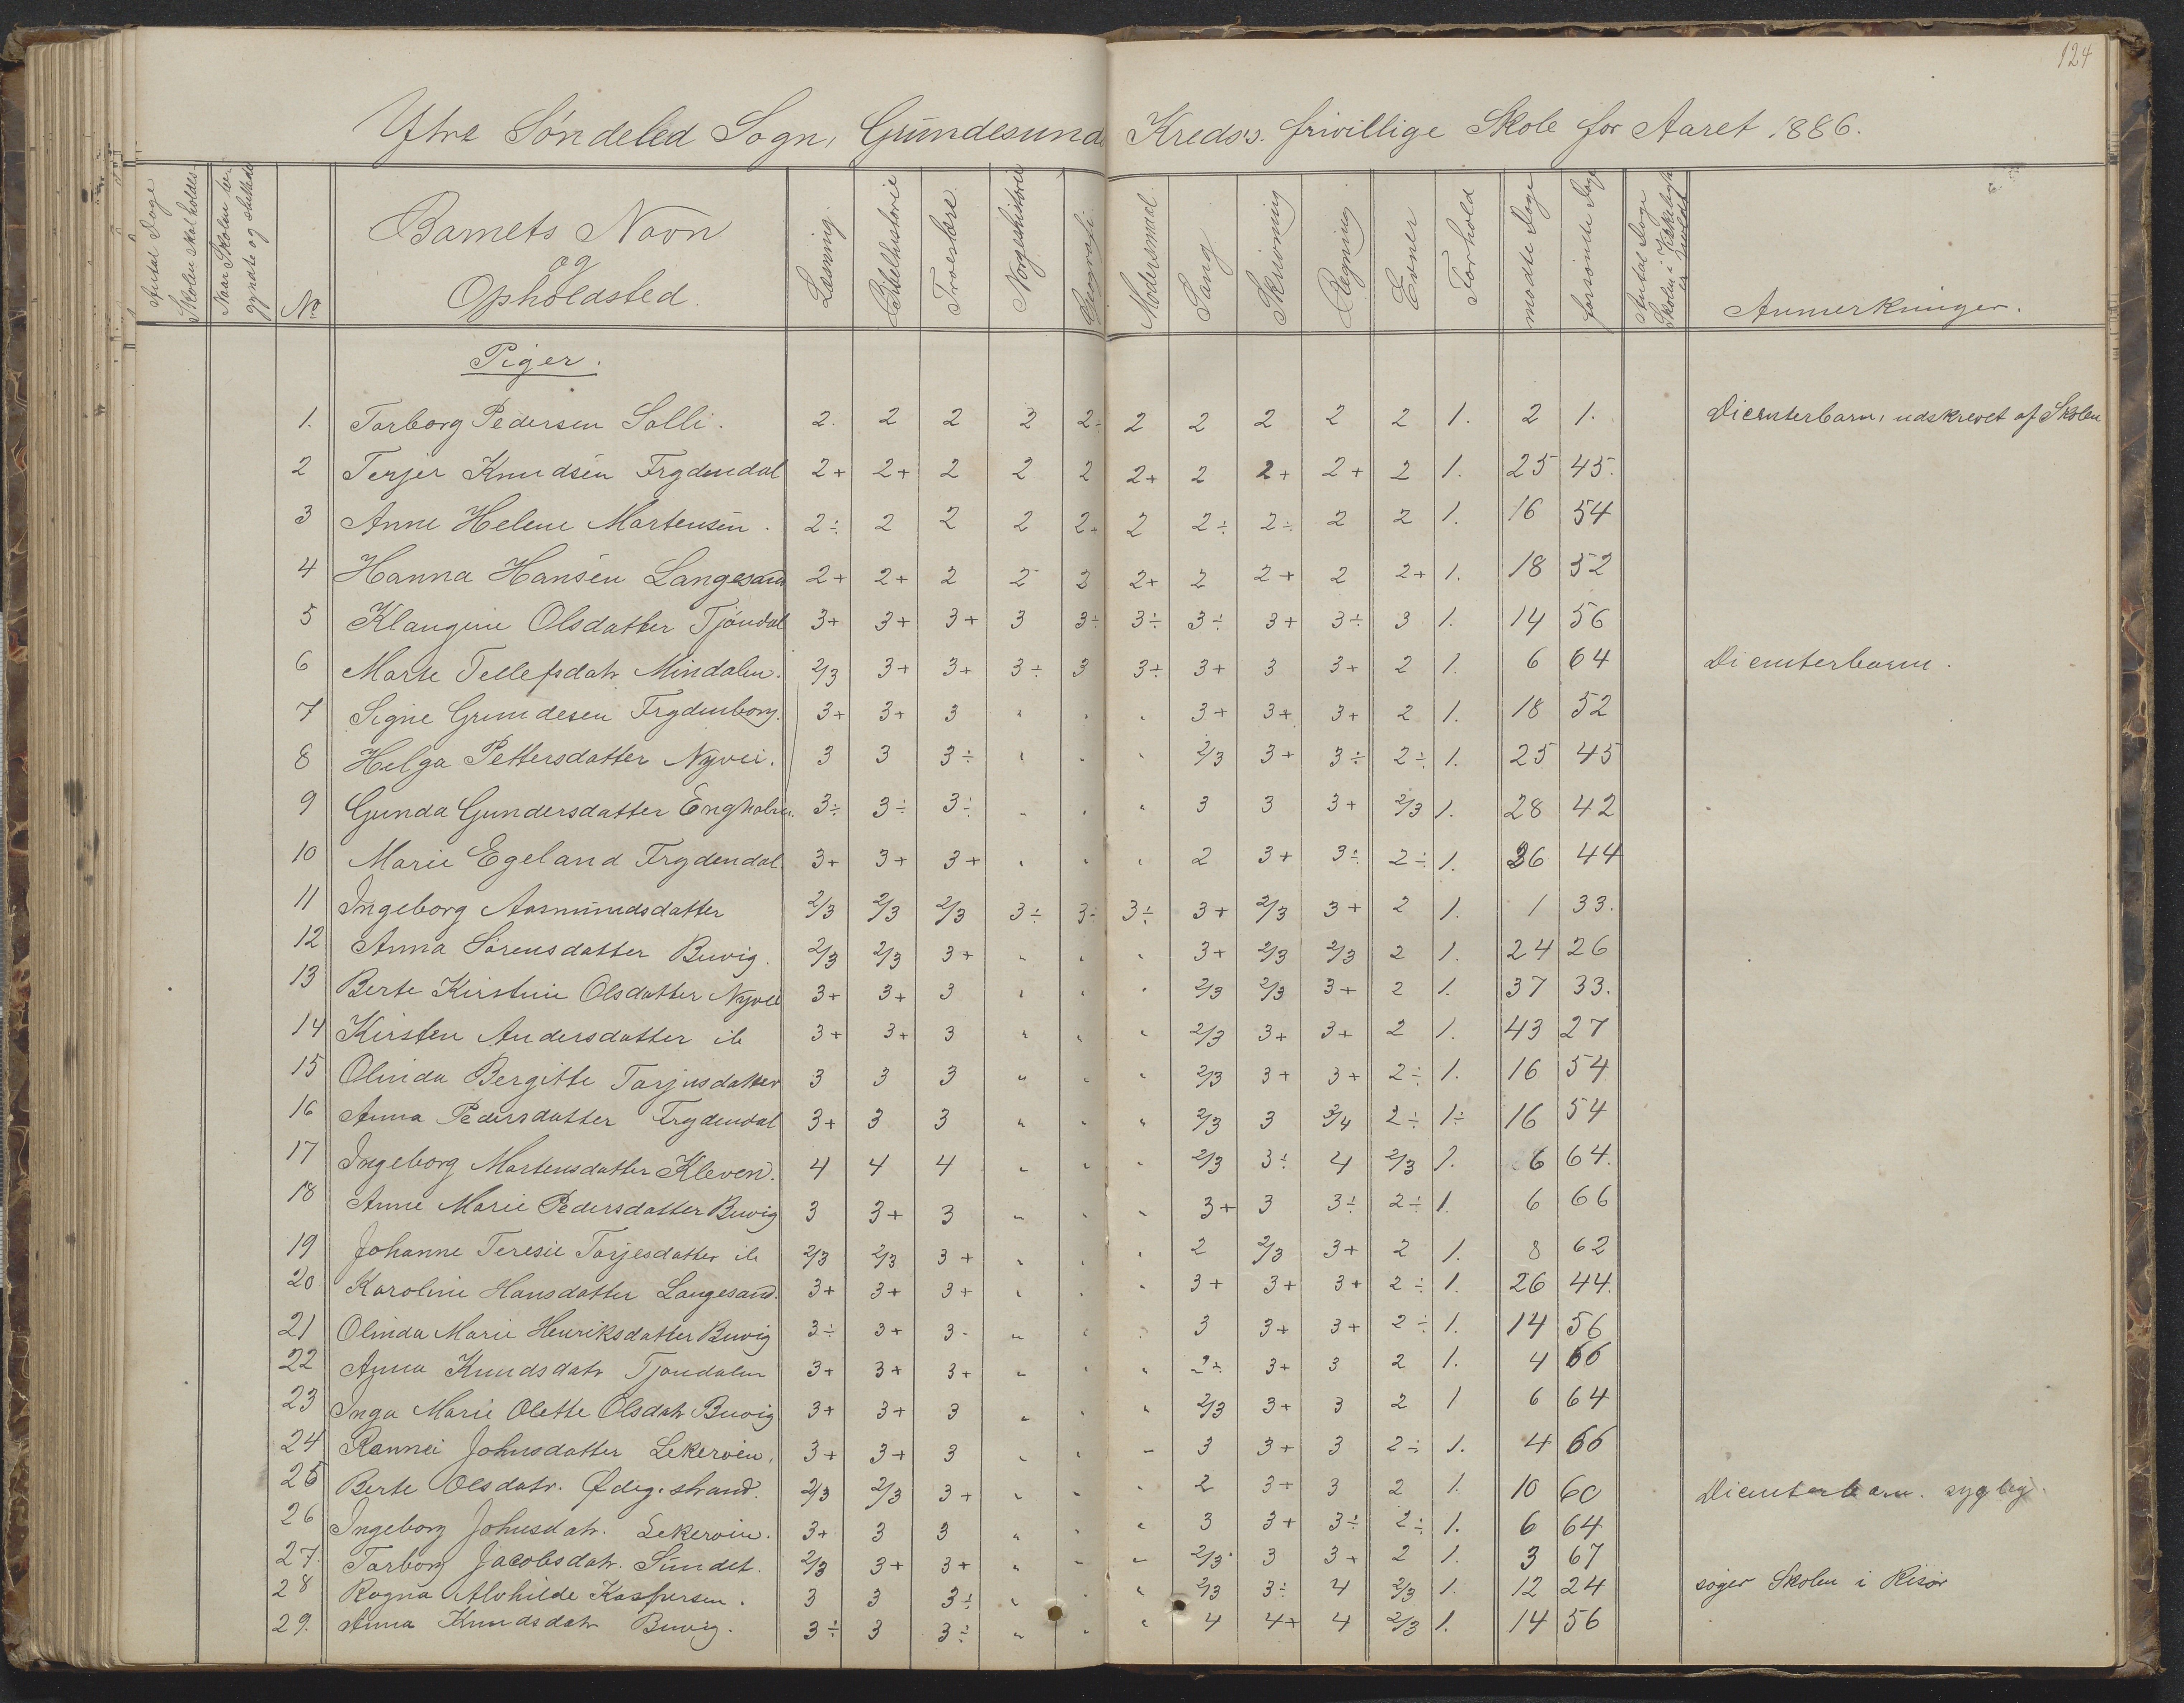 124
Ytre Söndeled Sogn, Gŭndesund Kredss. frivillige Skole for Aaret 1886.
Antal Dage Skolen skal holdes
Naar Skolen be- gyndte og sluttede
No
Barnets Navn og Opholdssted.
Læsning.
Bibelhistorie
Troeslære.
Norgeshistorie
Geografi.
Modersmaal.
Sang
Skrivning
Regning
Evner
Forhold
mødte Dage
forsømte Dage
Antal Dage Skolen i
Anmerkninger.
Piger.
1. Torborg Pedersen Solli. 2. 2 2 2 2÷ 2 2 2 2 2 1. 2 1. Dienterbarn, udskrevet af Skolen
2 Terjer Knudsen Frydendal 2+ 2+ 2 2 2 2+ 2 2+ 2+ 2 1. 25 45.
3 Anne Helene Martensen. 2÷ 2 2 2 2+ 2 2÷ 2÷ 2 2 1. 16 54
4 Hanna Hansen Langesand 2+ 2+ 2 2 2 2+ 2 2+ 2 2+ 1. 18 52
5 Klangine Olsdatter Tjöndal 3+ 3+ 3+ 3 3÷ 3÷ 3÷ 3+ 3÷ 3 1. 14 56
6 Marte Tellefsdatr Mindalen. 2/3 3+ 3+ 3÷ 3 3÷ 3+ 3 3+ 2 1. 6 64 Dienterbarn.
7 Signe Gundesen Frydenborg. 3+ 3+ 3 " " " 3+ 3+ 3+ 2 1. 18 52
8 Helga Pettersdatter Nyvei. 3 3 3÷ " " " 2/3 3+ 3÷ 2÷ 1. 25 45
9 Gunda Gundersdatter Engholm. 3÷ 3÷ 3÷ " " " 3 3 3+ 2/3 1. 28 42
10 Marie Egeland Frydendal 3+ 3+ 3+ " " " 2 3+ 3÷ 2÷ 1. 26 44
11 Ingeborg Aasmundsdatter 2/3 2/3 2/3 3÷ 3÷ 3÷ 3+ 2/3 3+ 2 1. 1 33.
12 Anna Sörensdatter Buvig. 2/3 2/3 3+ " " " 3+ 2/3 2/3 2 1. 24 26
13 Berte Kirstine Olsdatter Nyvei 3+ 3+ 3 " " " 2/3 2/3 3+ 2 1. 37 33.
14 Kirsten Andersdatter ib 3+ 3+ 3 " " " 2/3 3+ 3+ 2 1. 43 27
15 Olinda Bergitte Tarjusdatter 3 3 3 " " " 2/3 3+ 3+ 2÷ 1. 16 54
16 Anna Pedersdatter Frydendal 3+ 3 3 " " " 2/3 3 3/4 2÷ 1÷ 16 54
17 Ingeborg Martensdatter Kleven. 4 4 4 " " " 2/3 3÷ 4 2/3 1. 6 64.
18 Anne Marie Pedersdatter Buvig 3 3+ 3 " " " 3+ 3 3÷ 2÷ 1. 6 66
19 Johanne Teresie Tarjesdatter ib 2/3 2/3 3+ " " " 2 2/3 3+ 2 1. 8 62
20 Karoline Hansdatter Langesand. 3+ 3+ 3+ " " " 3+ 3+ 3+ 2÷ 1. 26 44.
21 Olinda Marie Henriksdatter Buvig 3÷ 3+ 3- " " " 3 3+ 3+ 2÷ 1. 14 56
22 Anna Knudsdatr Tjöndalen 3+ 3+ 3+ " " " 2÷ 3+ 3 2 1. 4 66
23 Inga Marie Olette Olsdatr Buvig 3+ 3+ 3 " " " 2/3 3+ 3 2 1 6 64
24 Rannei Johnsdatter Lekervien. 3+ 3+ 3 " " " 3 3+ 3 2÷ 1. 4 66
25 Berte Olsdatr. Ødeg. strand. 2/3 2/3 3+ " " " 2 3+ 3 2 1. 10 60 Dienterbarn. syglig.
26 Ingeborg Johnsdatr. Lekervien. 3+ 3 3 " " " 3 3+ 3÷ 2÷ 1. 6 64
27. Torborg Jacobsdatr. Sundet. 2/3 3+ 3+ " " " 2/3 3 3+ 2 1. 3 67
28 Ragna Alvhilde Kaspersen. 3 3 3÷ " " 2/3 3÷ 4 2/3 1. 12 24 söger Skolen i Risör
29. Anna Knudsdatr Buvig. 3÷ 3 3÷ " " " 4 4+ 4 2/3 1. 14 56